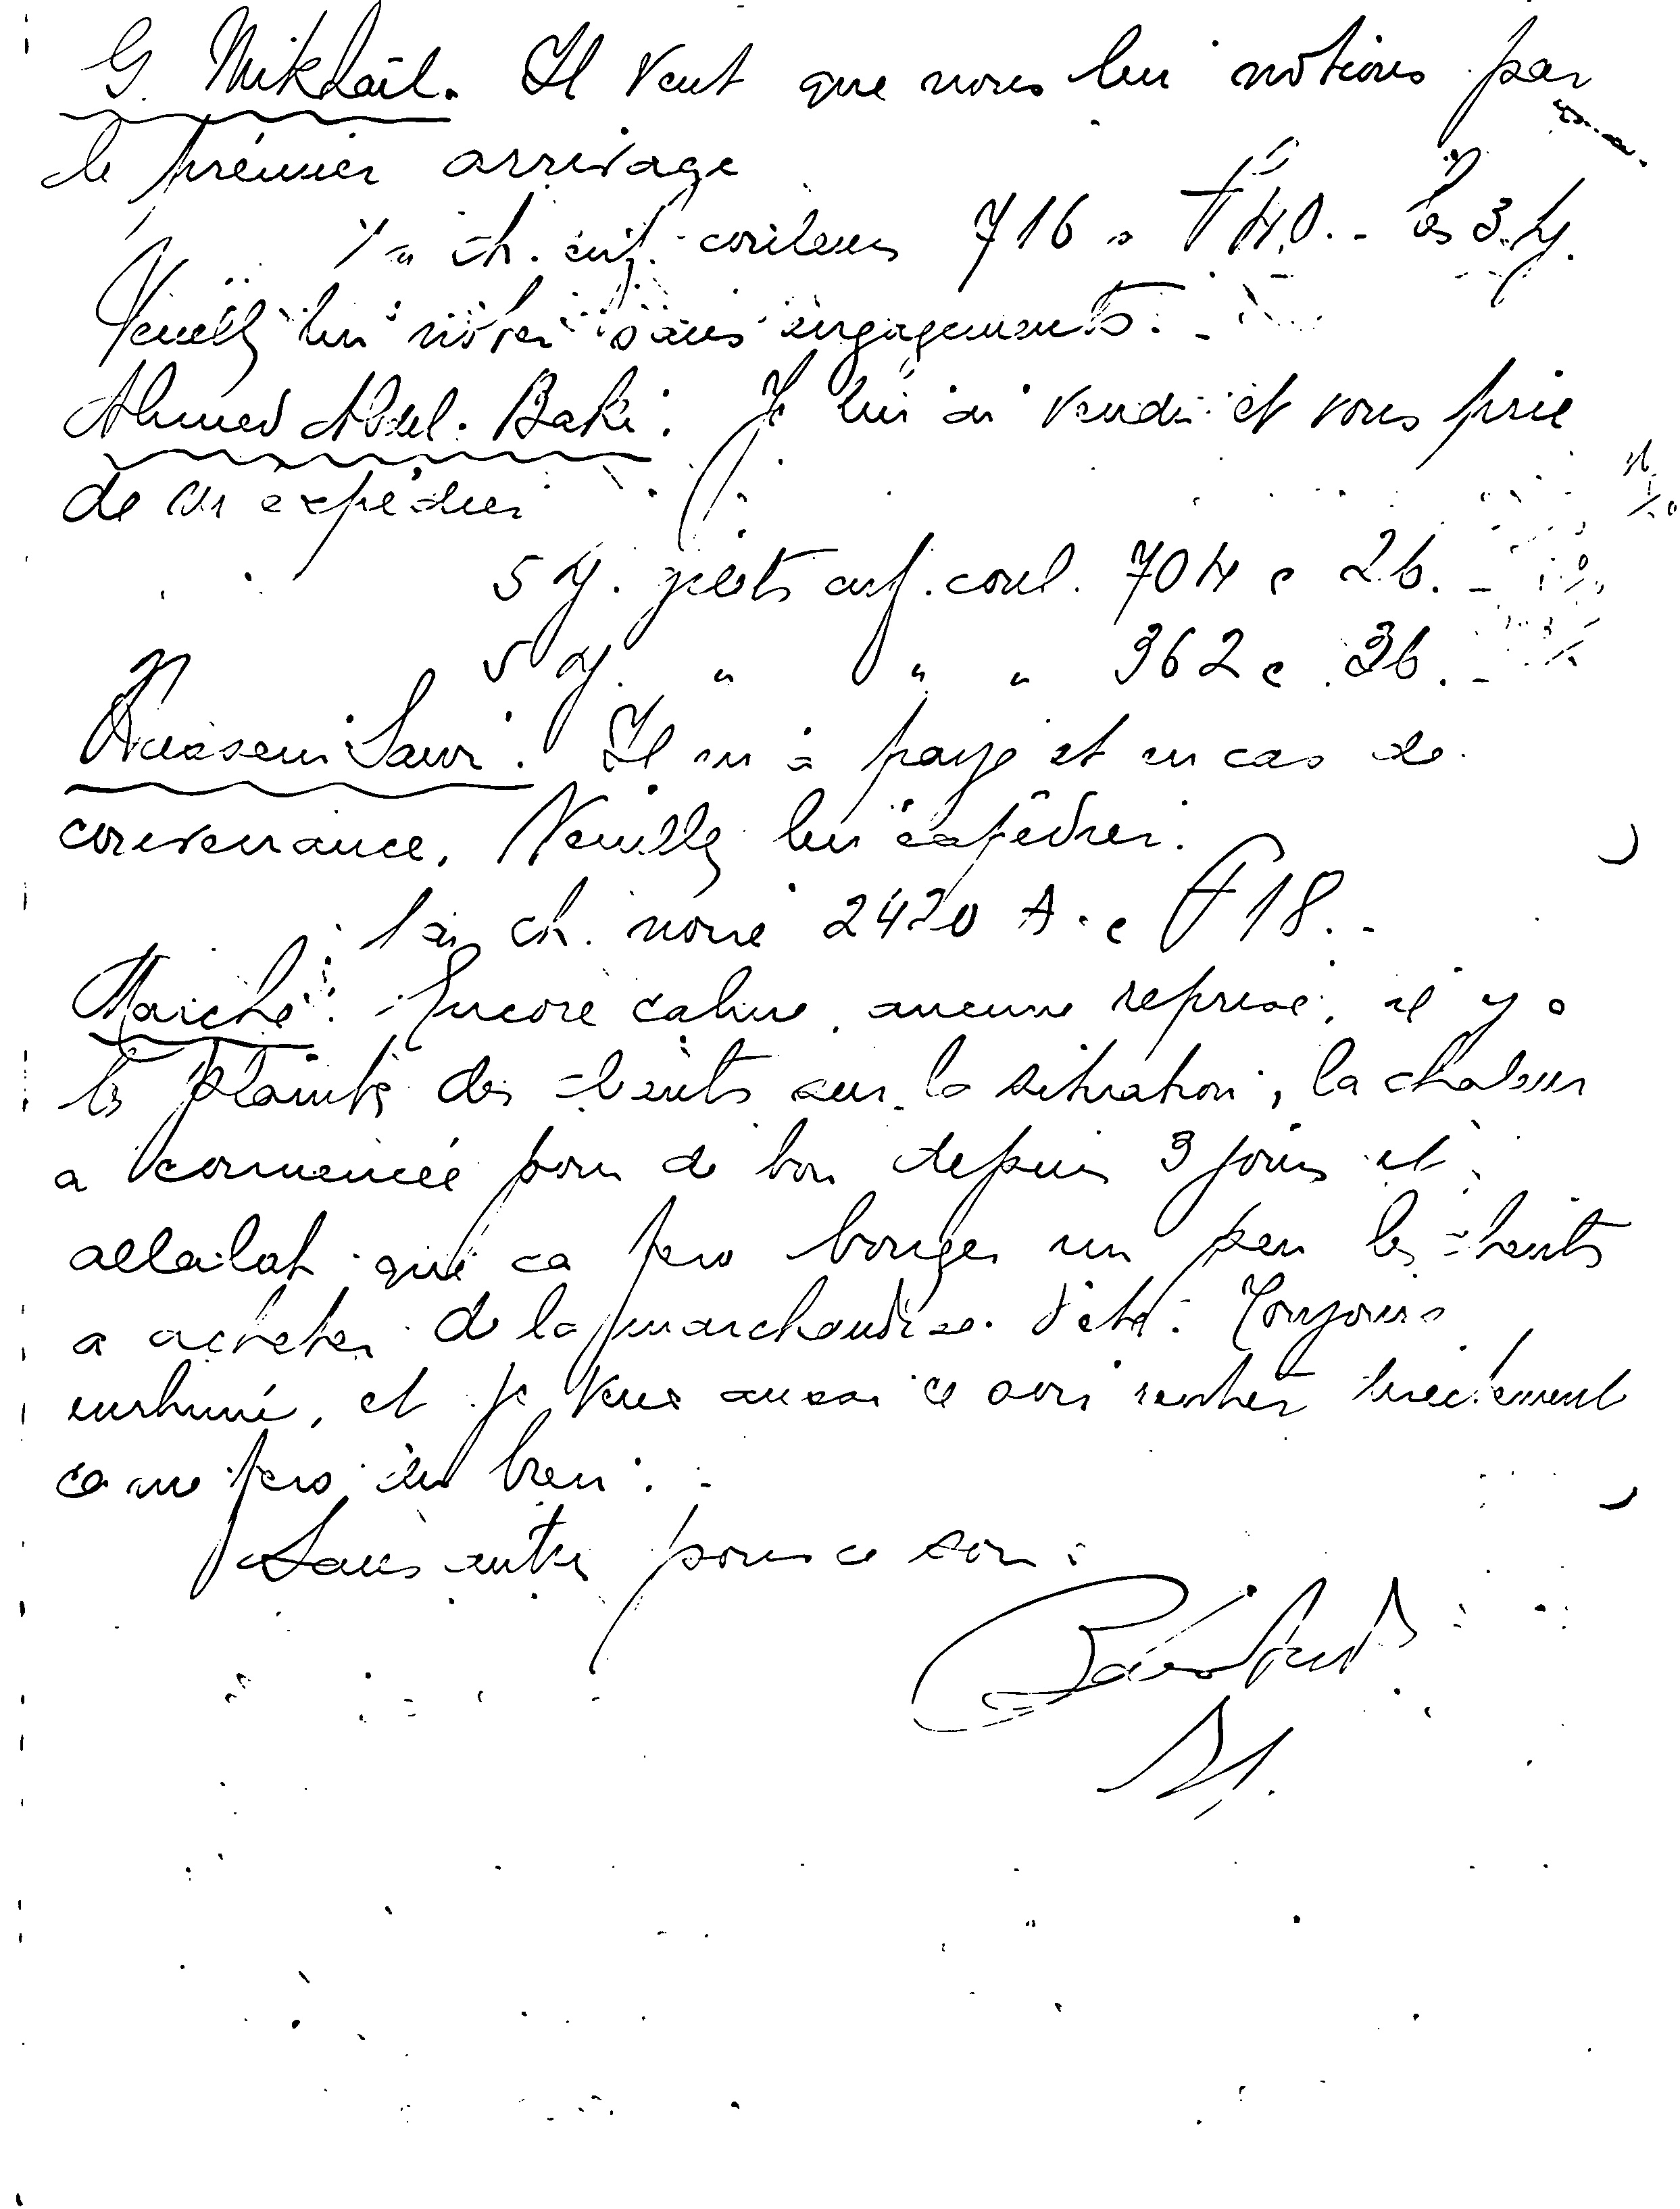 G. Mikhaïl. Il veut que nous lui notions par
le prémier arrivage
ch. enf. couleurs 716 a 40.- les 3 
Veuillez lui noter sans engagements.-
Ahmed Abdel. Baki. Je lui ai vendu et vous prie
de lui expédier
5 gilets enf. coul. 704 c 26.-
5 " " " 362 c 36.-
Il m'a payé et en cas de
convenance, Veuillez lui expédier.
1 ch. noire 2420 A. c 18.-
Marché: Encore calme, aucune reprise, il y a
les plaints des clients sur la situation, la chaleur
a commencée pour de bon depuis 3 jours et
que ca fera bouger un peu les clients
a acheter de la marchandise d'été. Toujours
enrhumé, et je veux aussi ce soir rentrer directement
ca me fera du bien.-
Sans autre pour ce soir.